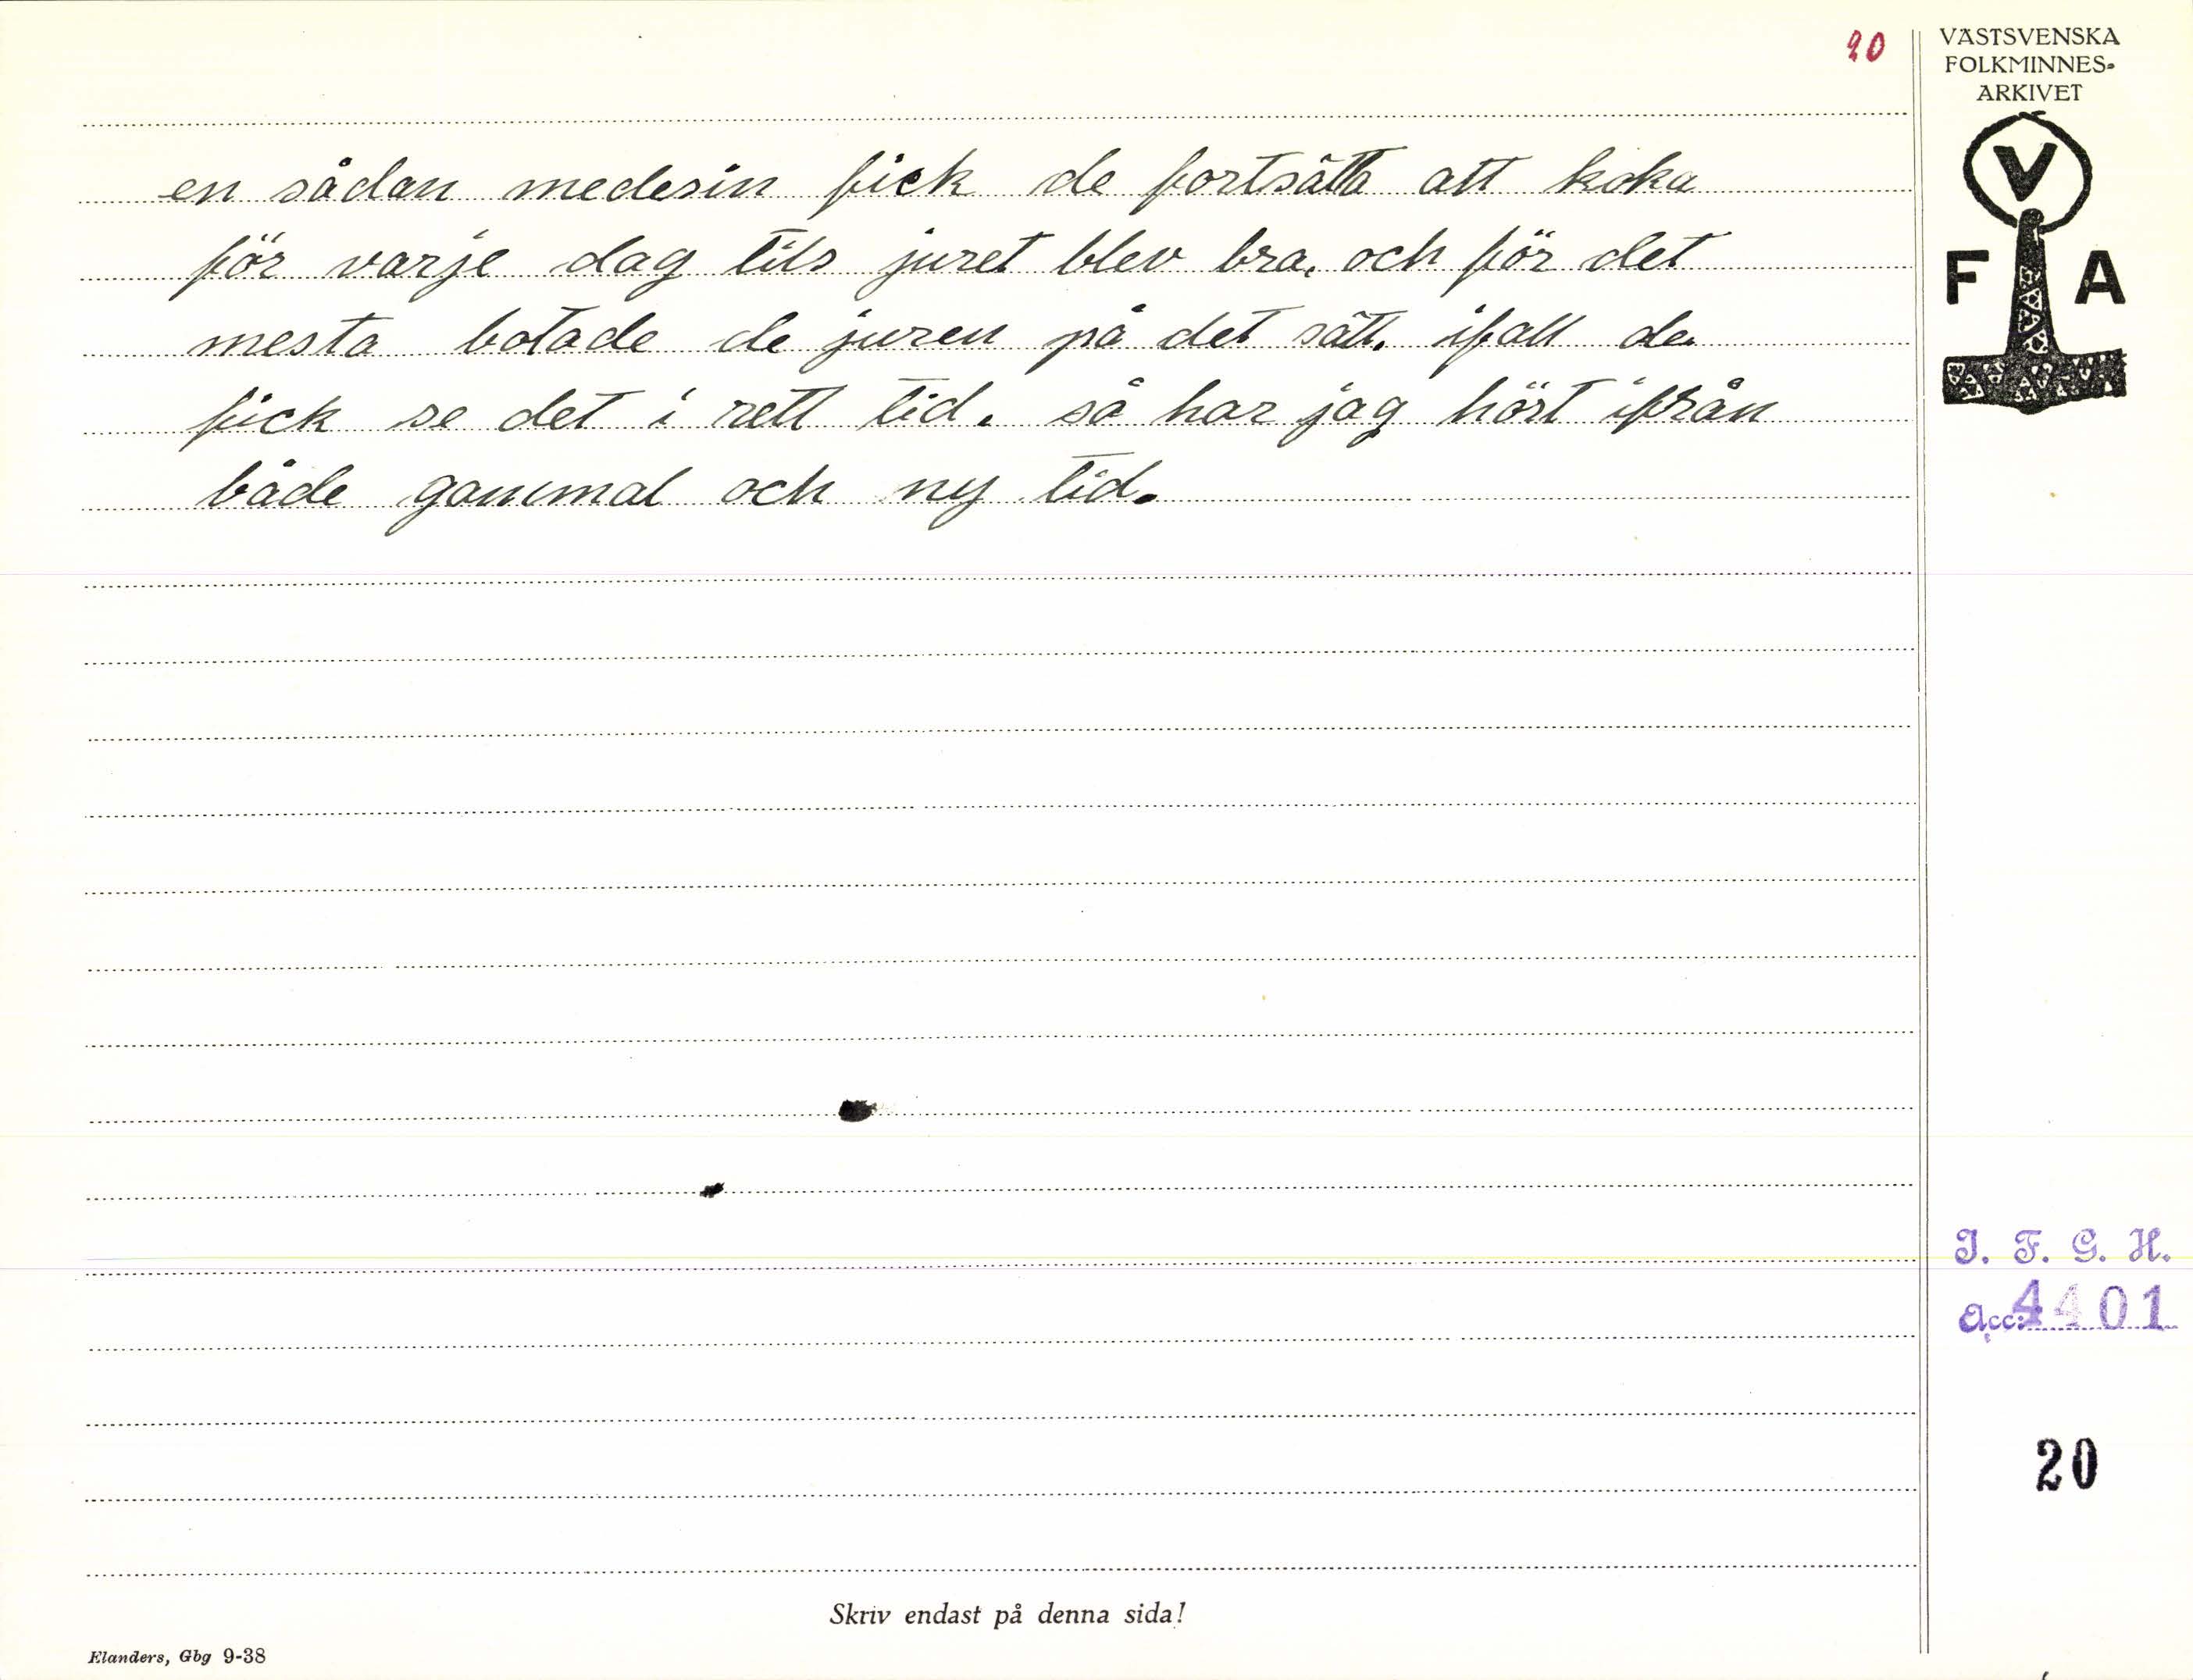 20
VÄSTSVENSKA
FOLKMINNES-
ARKIVET
V
F A
en sådan medesin fick de fortsätta att koka
för varje dag tils juret blev bra, och för det
mesta botade de juren på det sätt. ifall de
fick se det i rett tid. så har jag hört ifrån
både gammal och ny tid.
I. F. G. H.
Acc: 4401
20
Skriv endast på denna sida!
Elanders, Gbg 9-38